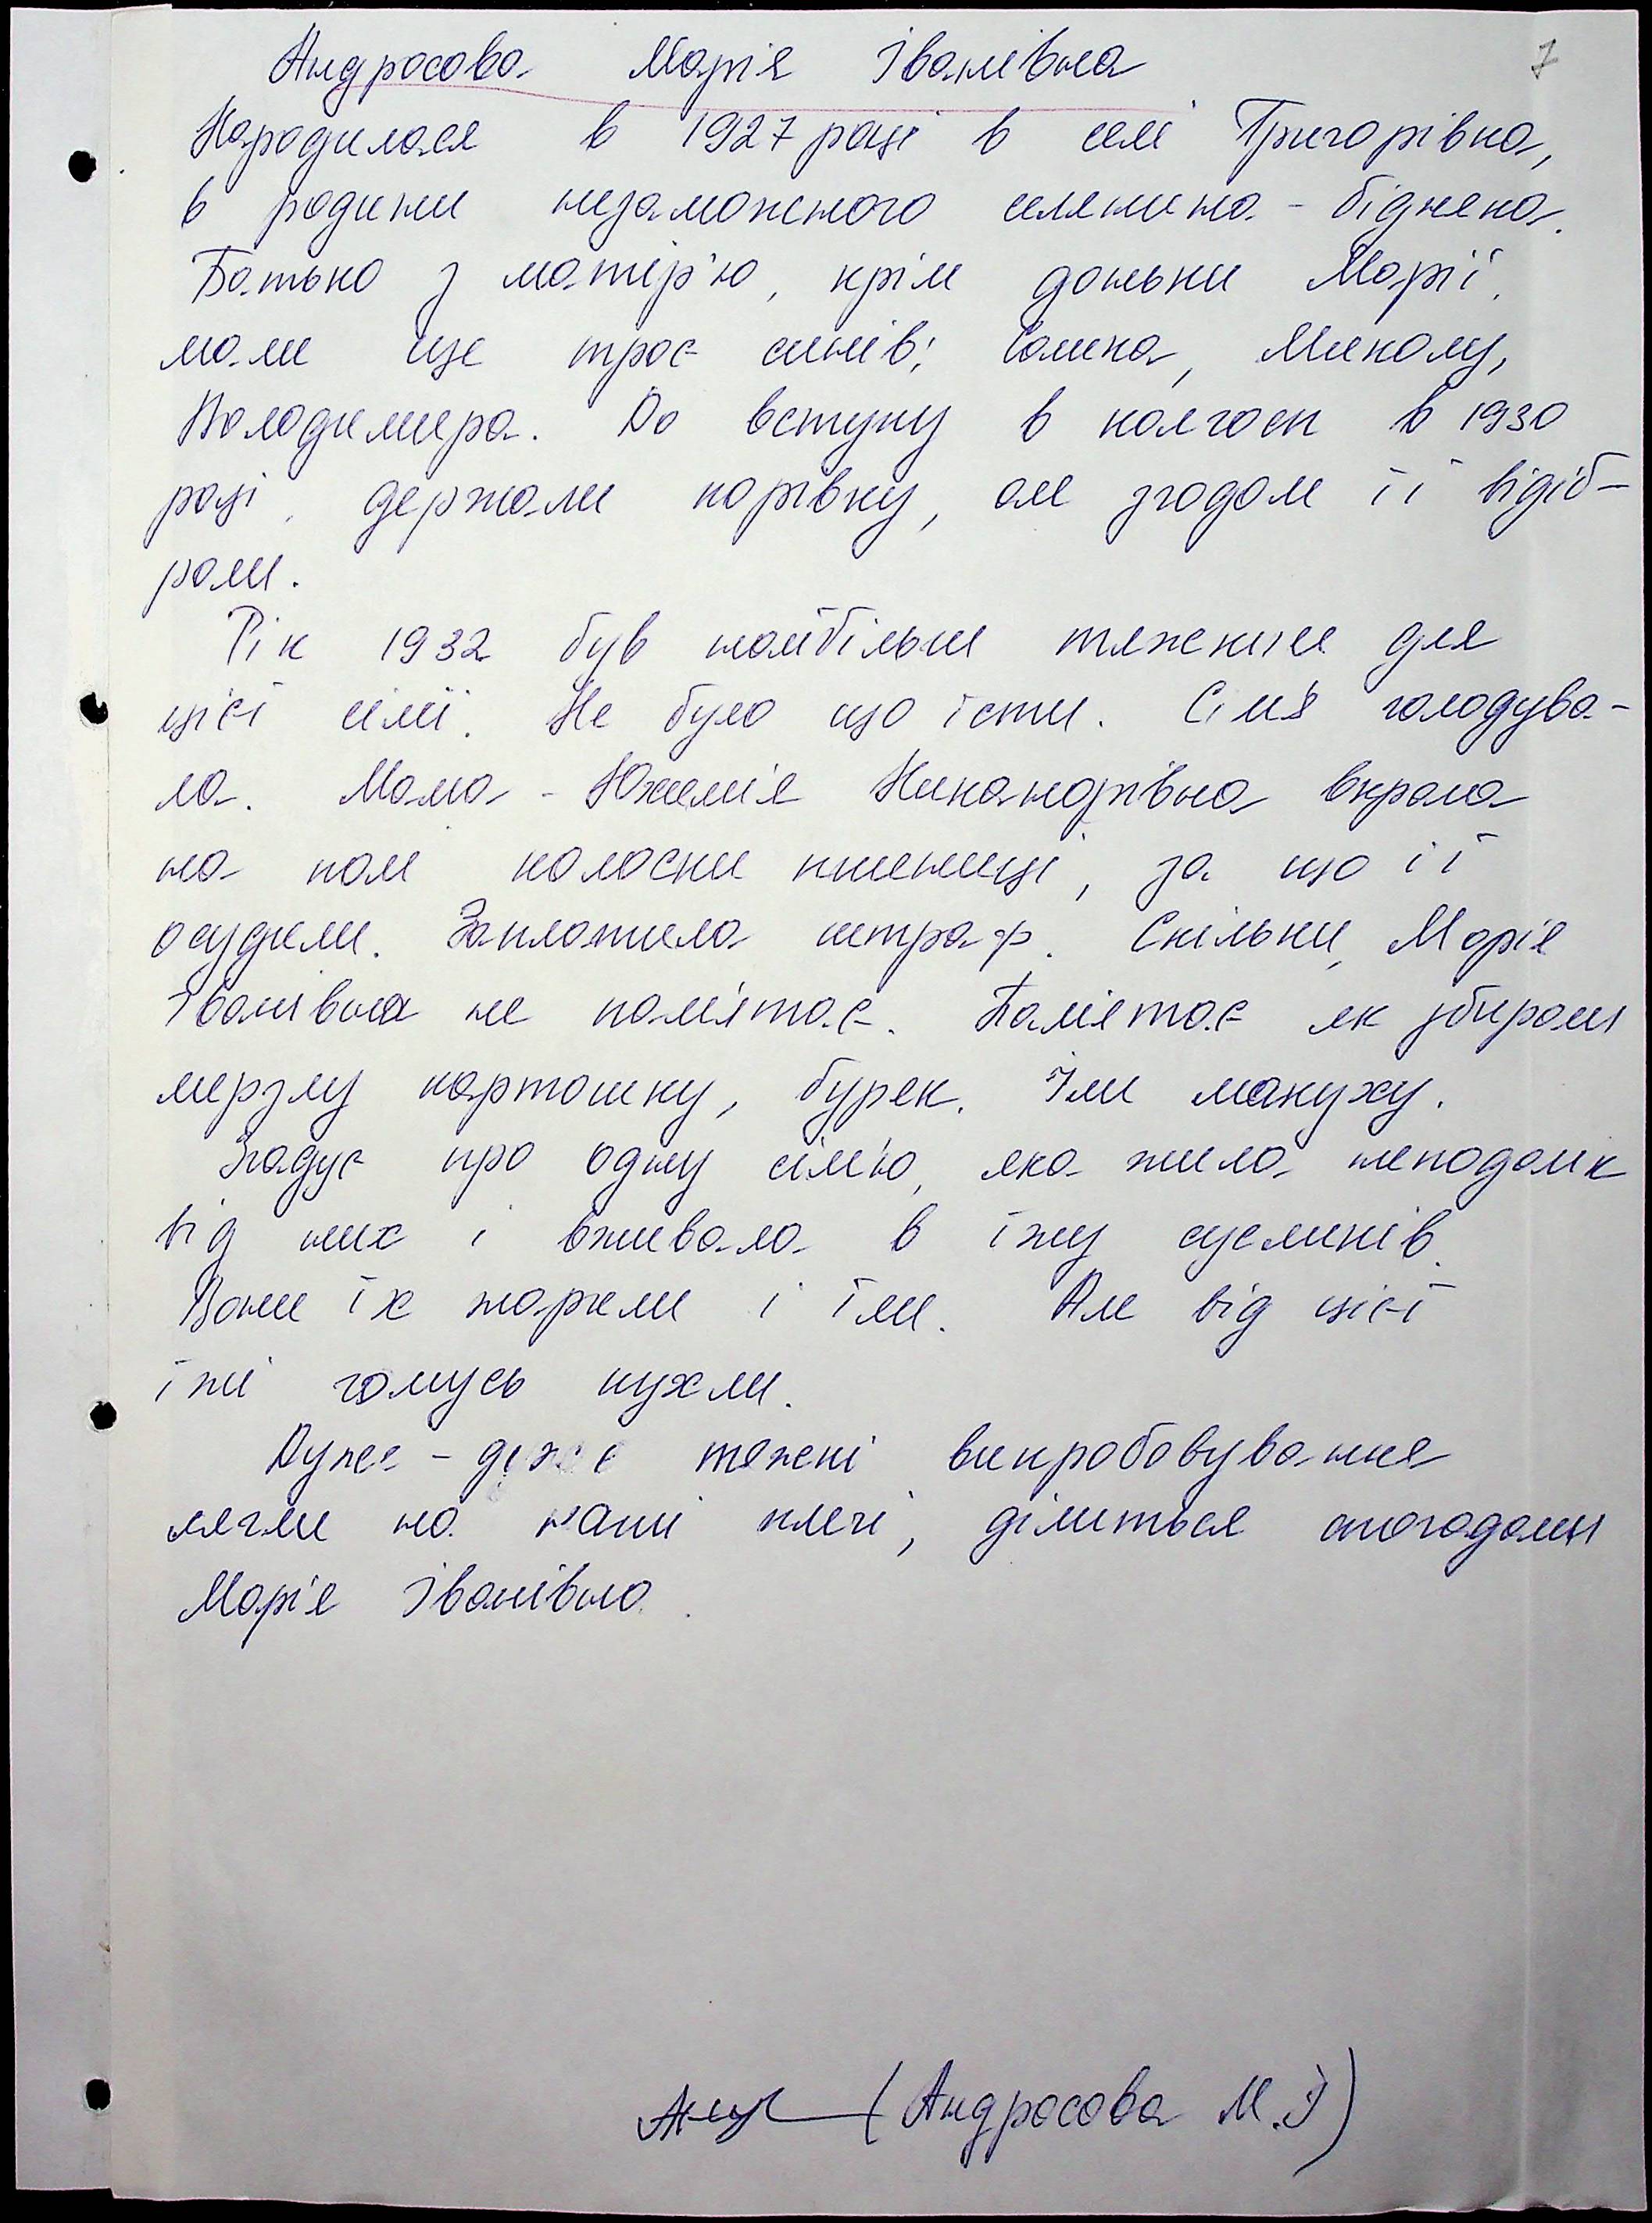 Андросова Марія Іванівна
7
Народилася в 1927 році в селі Григорівка,
в родини незаможного селянина - бідняка.
Батько з матір'ю, крім доньки Марії,
мали ще троє синів; Миколу,
Володимира. До вступу в колгосп в 1930
році, держали корівку, але згодом її відіб-
рали.
Рік 1932 був найбільш тяжким для
цієї сімї. Не було що їсти. Сім'я голодува-
ла. Мама - Никанорівна вкрала
на полі колоски пшениці, за що її
осудили. Заплатила штраф. Скільки, Марія
Іванівна не пам'ятає. Памятає як збирали
мерзлу картошку, буряк. Їли макуху.
Згадує про одну сім'ю, яка жила неподалік
від них і вживала в їжу сусликів.
Вони їх жарили і їли. Але від цієї
їжі чомусь пухли.
Дуже - дуже тяжкі випробовування
лягли на наші плечі, ділиться спогадами
Марія Іванівна.
(Андросова М.І)